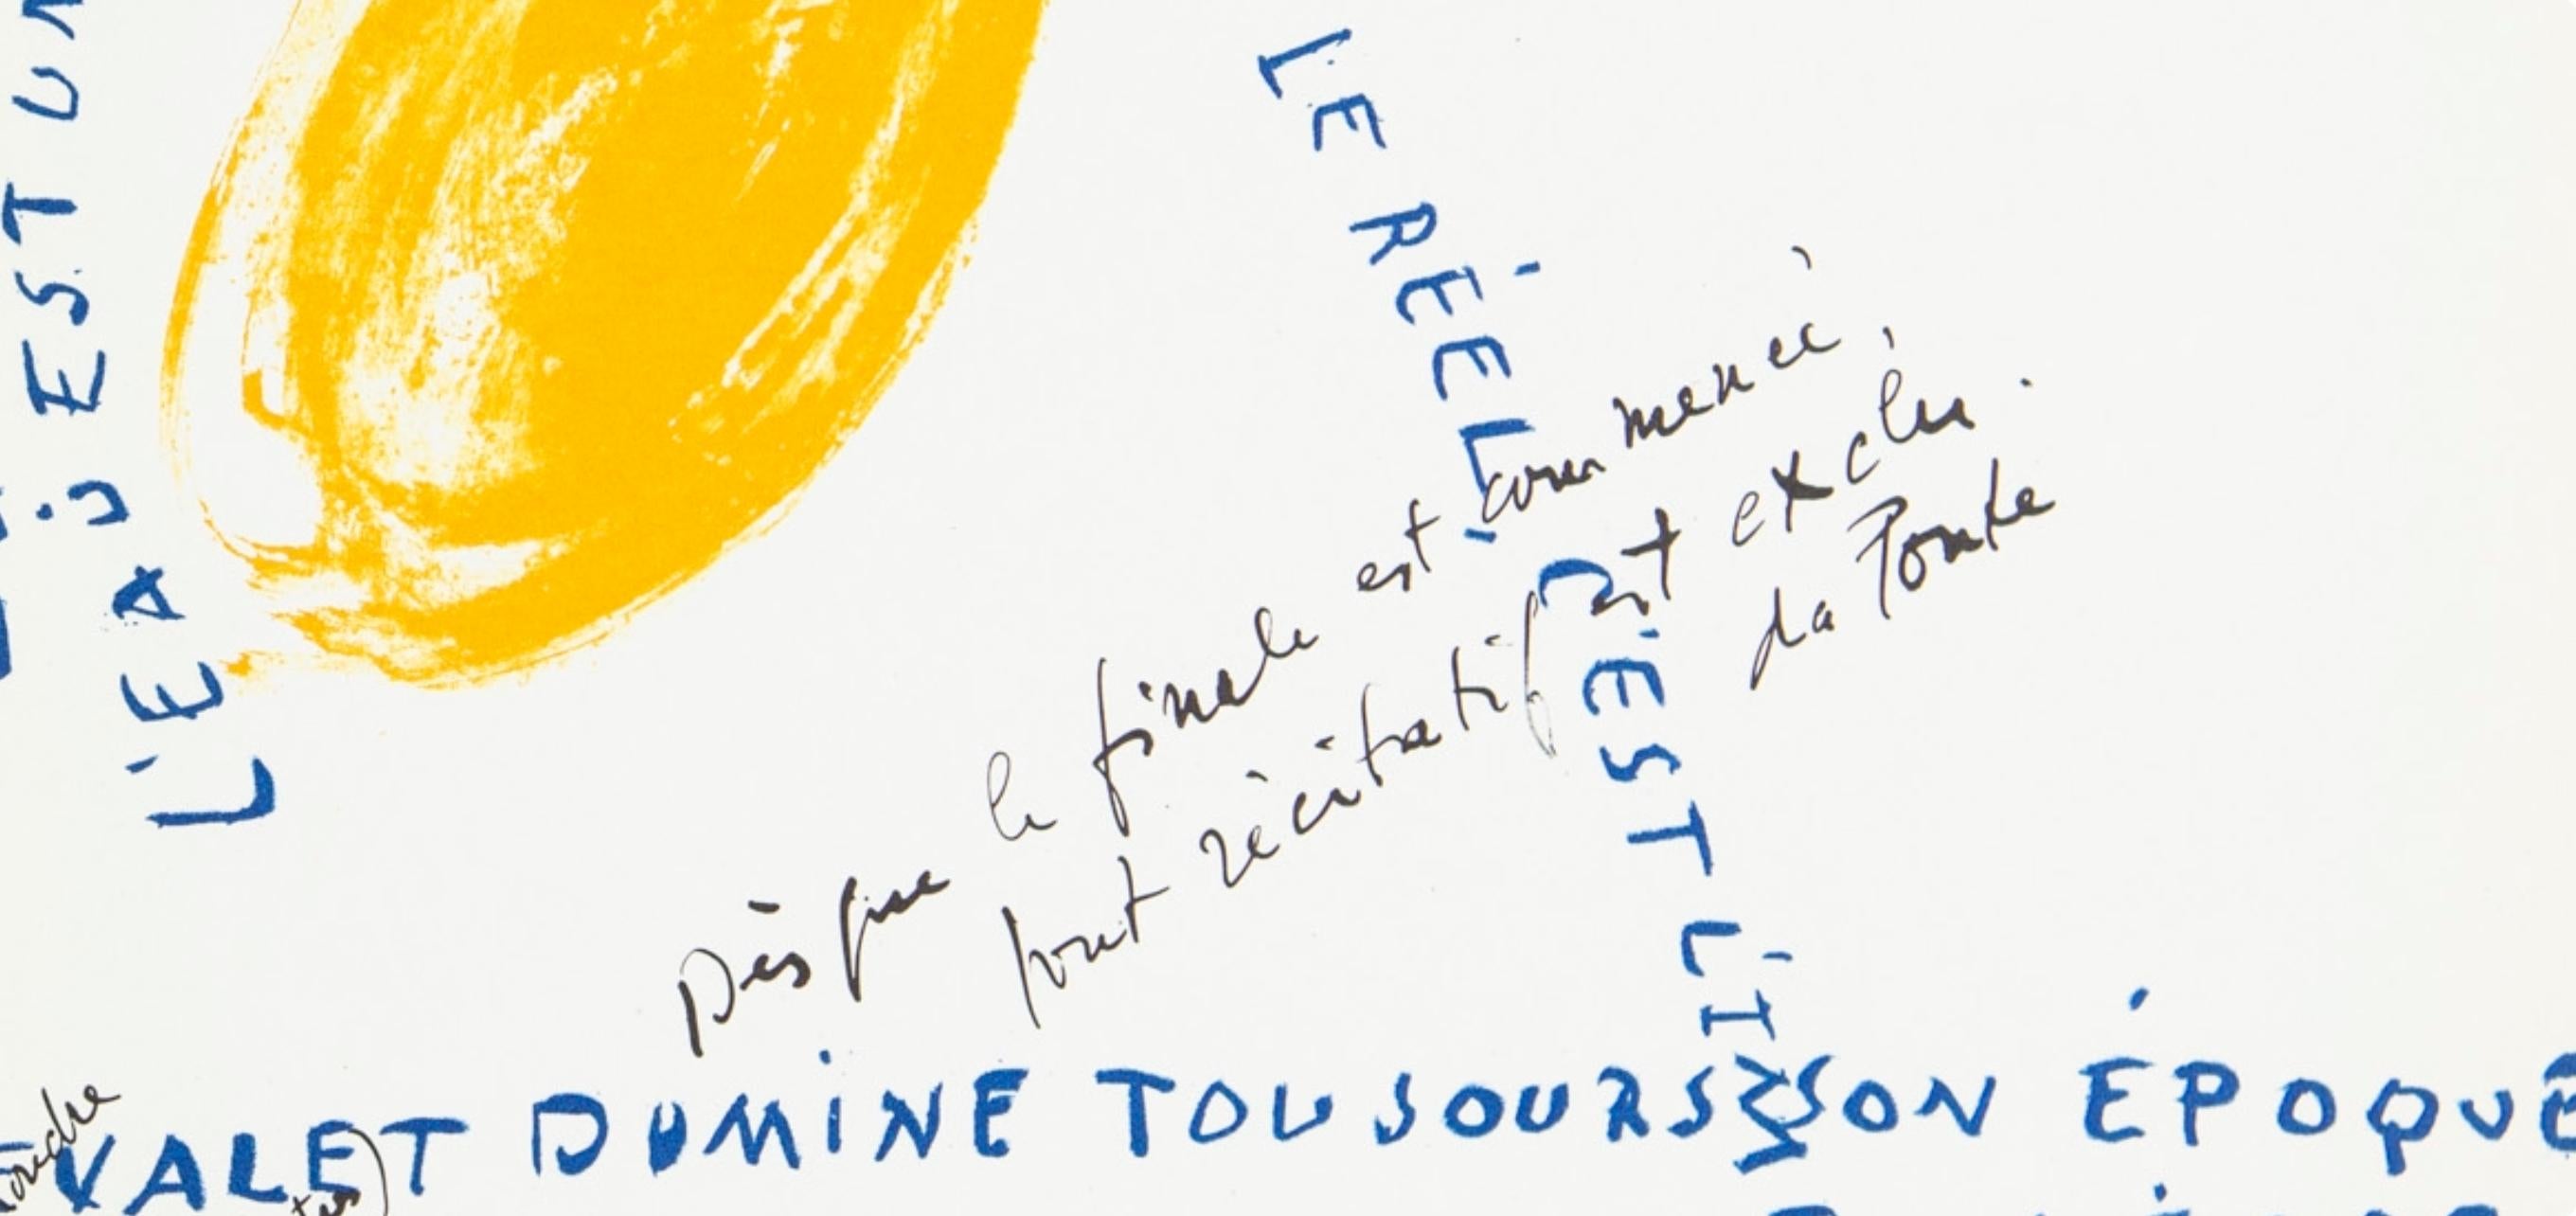 L'EAU EST UN
LE RÉEL, C'EST L'I
Dès que le finale est commencé,
tout récitatif est exclu.
da Ponte
VALET DOMINE TOUJOURS SON ÉPOQUE